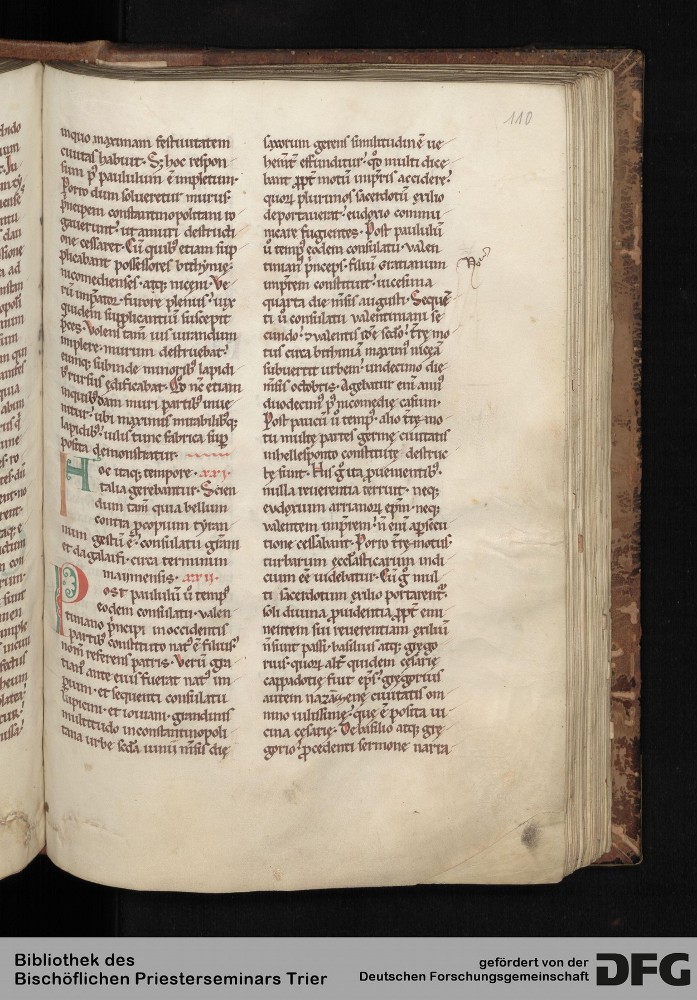 110
inquo maximam festiuitatem
ciuitas habuit. S; hoc respon
sum p̄ paululum ē impletum.
Porro dum solueretur murus.
p̄ncipem constantinopolitani ro
gauerunt. ut amuri destructi
one cessaret. Cū quib; etiam sup
plicabant possessores bithynię.
nicomedienses. atq; niceni. Ve
rū imp̄ator. furore plenus. uix
quidem supplicantiū suscepit
p̄ces. Volens tam̄ uis iurandum
implere. murum destruebat.
eumq; subinde minorib; lapidi
b; rursus edificabat. Et n̄c etiam
inquib;dam muri partib; inue
nitur. ubi maximis mirabilib;q;
lapidib;. uilis tunc fabrica sup̄
posita demonstratur.
Hoc itaq; tempore. xxi.
talia gerebantur. Scien
dum tam̄ quia bellum
contra procopium tyran
num gestū ē. consulatu gr̄ani
et dagalaifi. circa terminum
maiinensis. xxii.
Post paululū ū temp;
eodem consulatu. valen
tiniano p̄ncipi in occidentis
partib; constituto nat; ē filius.
nom̄ referens patris. Verū gra
tian; ante eius fuerat nat; im
perium. et sequenti consulatu
lupicini. et iouiani. grandinis
multitudo inconstantinopoli
tana urbe secd̄a iunii m̄sis die
saxorum gerens similitudinē ue
hemt̄ effunditur. qd̄ multi dice
bant ppt̄ motū imp̄ris accidere.
quor plurimos sacerdotū exilio
deportauerat. eudoxio commu
nicare fugientes. Post paululū
ū temp; eodem consulatu. valen
tinian; p̄nceps. filiū Gratianum
imp̄rem constituit. uicesima
quarta die m̄sis augusti. Sequē
ti ū consulatu valentiniani se
cundo. 7 valentis secd̄o. tr̄rę mo
tus circa bithiniā maximū niceā
subuertit urbem. undecimo die
m̄sis octobris. Agebatur eni ann;
duodecim; p̄ nicomedię casum.
Post pauculū ū temp;. alio tr̄rę mo
tu multę partes germę ciuitatis
inhellesponto constitutę destruc
tę sunt. His g̊ ita p̄uenientib;.
nulla reuerentia terruit. neq;
eudoxium arrianor ep̄m. neq;
valentem imp̄rem. n̄ eni ap̄secu
tione cessabant. Porro tr̄rę motus.
turbarum ecclasticarum indi
cium ēē uidebatur. Cū g̊ mul
ti sacerdotum exilio portarent̄.
soli diuina p̄uidentia ppt̄ emi
nentem sui reuerentiam exiliū
n̄ sunt passi. basilius atq; grego
rius. quor alt̄ quidem cęsarię
cappadocię fuit ep̄s. gregorius
autem nazanzenę ciuitatis om
nino uilissimę. que ē posita ui
cina cęsarię. De basilio atq; gre
gorio. p̄cedenti sermone narra
Bibliothek des
Bischöflichen Priesterseminars Trier
gefördert von der
Deutschen Forschungsgemeinschaft
DFG